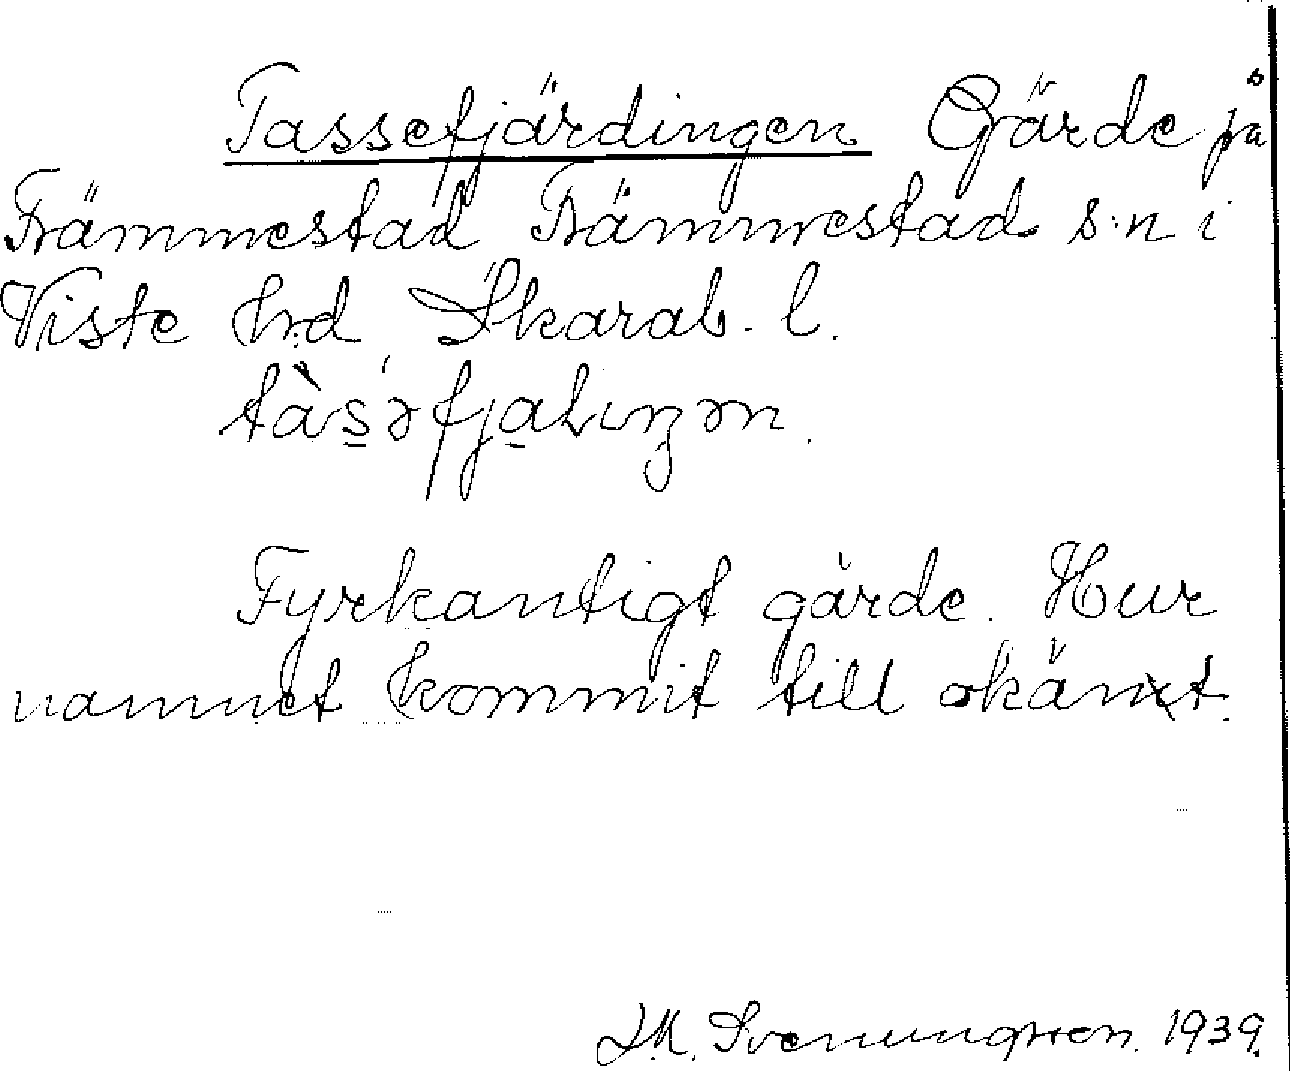 Tassefjärdingen Gärde på
Främmestad Främmestad s:n i
Viste hrd Skarab. l.
tàs̲əfja̲ɫıŋən.
Fyrkantigt gärde. Hur
namnet kommit till okänt.
J.M. Svenungsson. 1939.